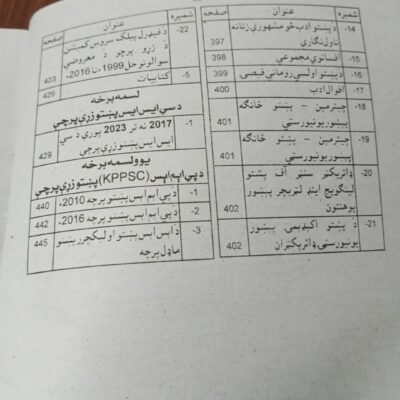 شمېره عنوان صفحه
14- د پښتو ادب څو مشهورې زنانه
ناول نگارې 397
15- افسانوي مجموعې 398
16- د پښتو اولسي روماني قيصې 399
17- اقوال ادب 400
18- چيئرمين - پښتو څانگه
پېښور يونيورسټي 401
19- چيئرمين - پښتو څانگه
پېښور يونيورسټي 401
20- ډائريکټر سنټر آف پشتو
لينگويج اينډ لټريچر پېښور
پوهنتون 402
21- د پښتو اکېډيمۍ پېښور
يونيورسټۍ ډائرېکټران 402
شمېره عنوان صفحه
22- د فيډرل پبلک سروس کميشن
د زړو پرچو د معروضي
سوالونو حل 1999ء تا 2016ء 403
5- کتابيات 429
لسمه برخه
د سي ايس ايس پښتو زړې پرچې
1- 2017 نه تر 2023 پورې د سي
ايس ايس پښتو زړې پرچې 429
يوولسمه برخه
د پي ايم ايس (KPPSC) پښتو زړې پرچې
1- د پي ايم ايس پښتو پرچه 2010ء 440
2- د پي ايم ايس پښتو پرچه 2016ء 442
3- د ايس ايس پښتو او ليکچرر پښتو
ماډل پرچه 445